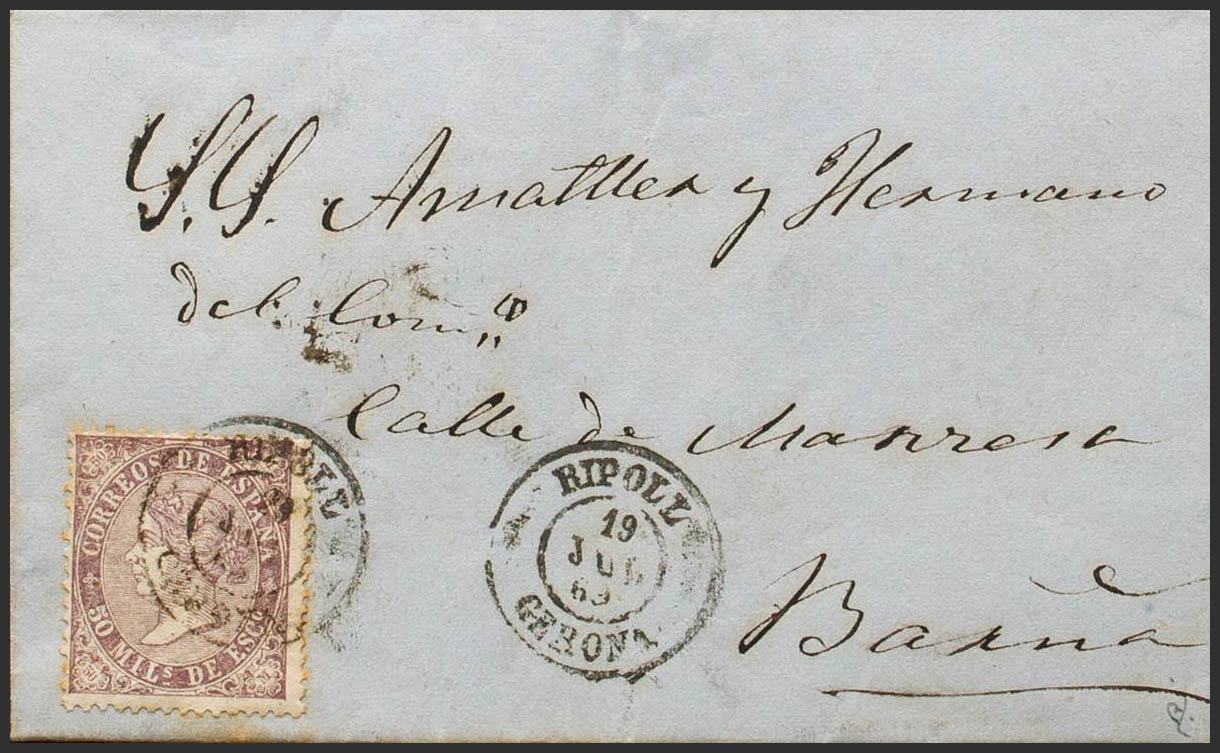 S.S. Amatller y Hermano
del Com.º
Calle de Manresa
Barna
CORREOS DE ESPAÑA
50 MIL.S DE ESCO
RIPOLL
RIPOLL
19
JUL
69
GERONA